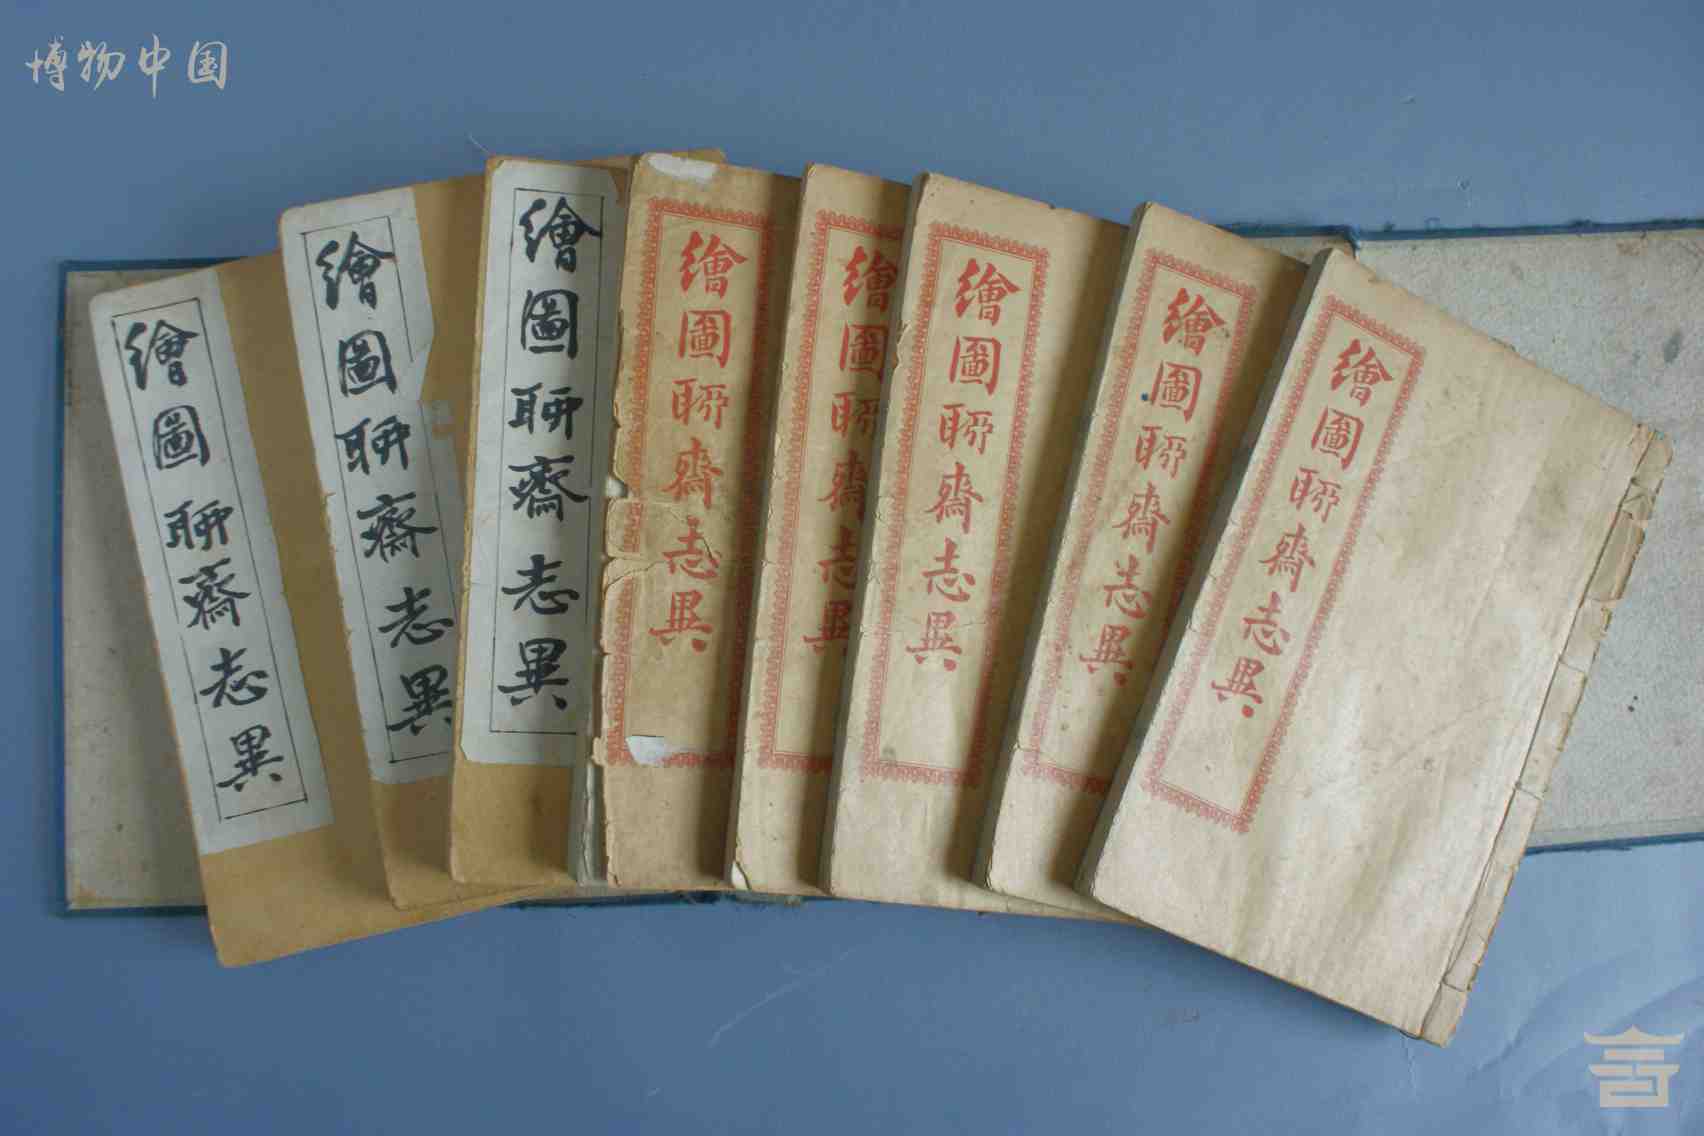 博物中国
繪圖聊齋志異
繪圖聊齋志異
繪圖聊齋志異
繪圖聊齋志異
繪圖聊齋志異
繪圖聊齋志異
繪圖聊齋志異
繪圖聊齋志異